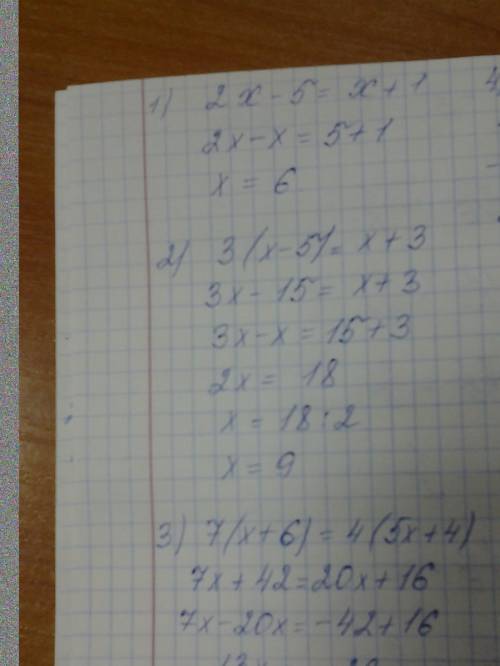 1) 2x - 5 = x + 1
2x - x = 5 + 1
x = 6
2) 3(x - 5) = x + 3
3x - 15 = x + 3
3x - x = 15 + 3
2x = 18
x = 18 : 2
x = 9
3) 7(x + 6) = 4(5x + 4)
7x + 42 = 20x + 16
7x - 20x = -42 + 16